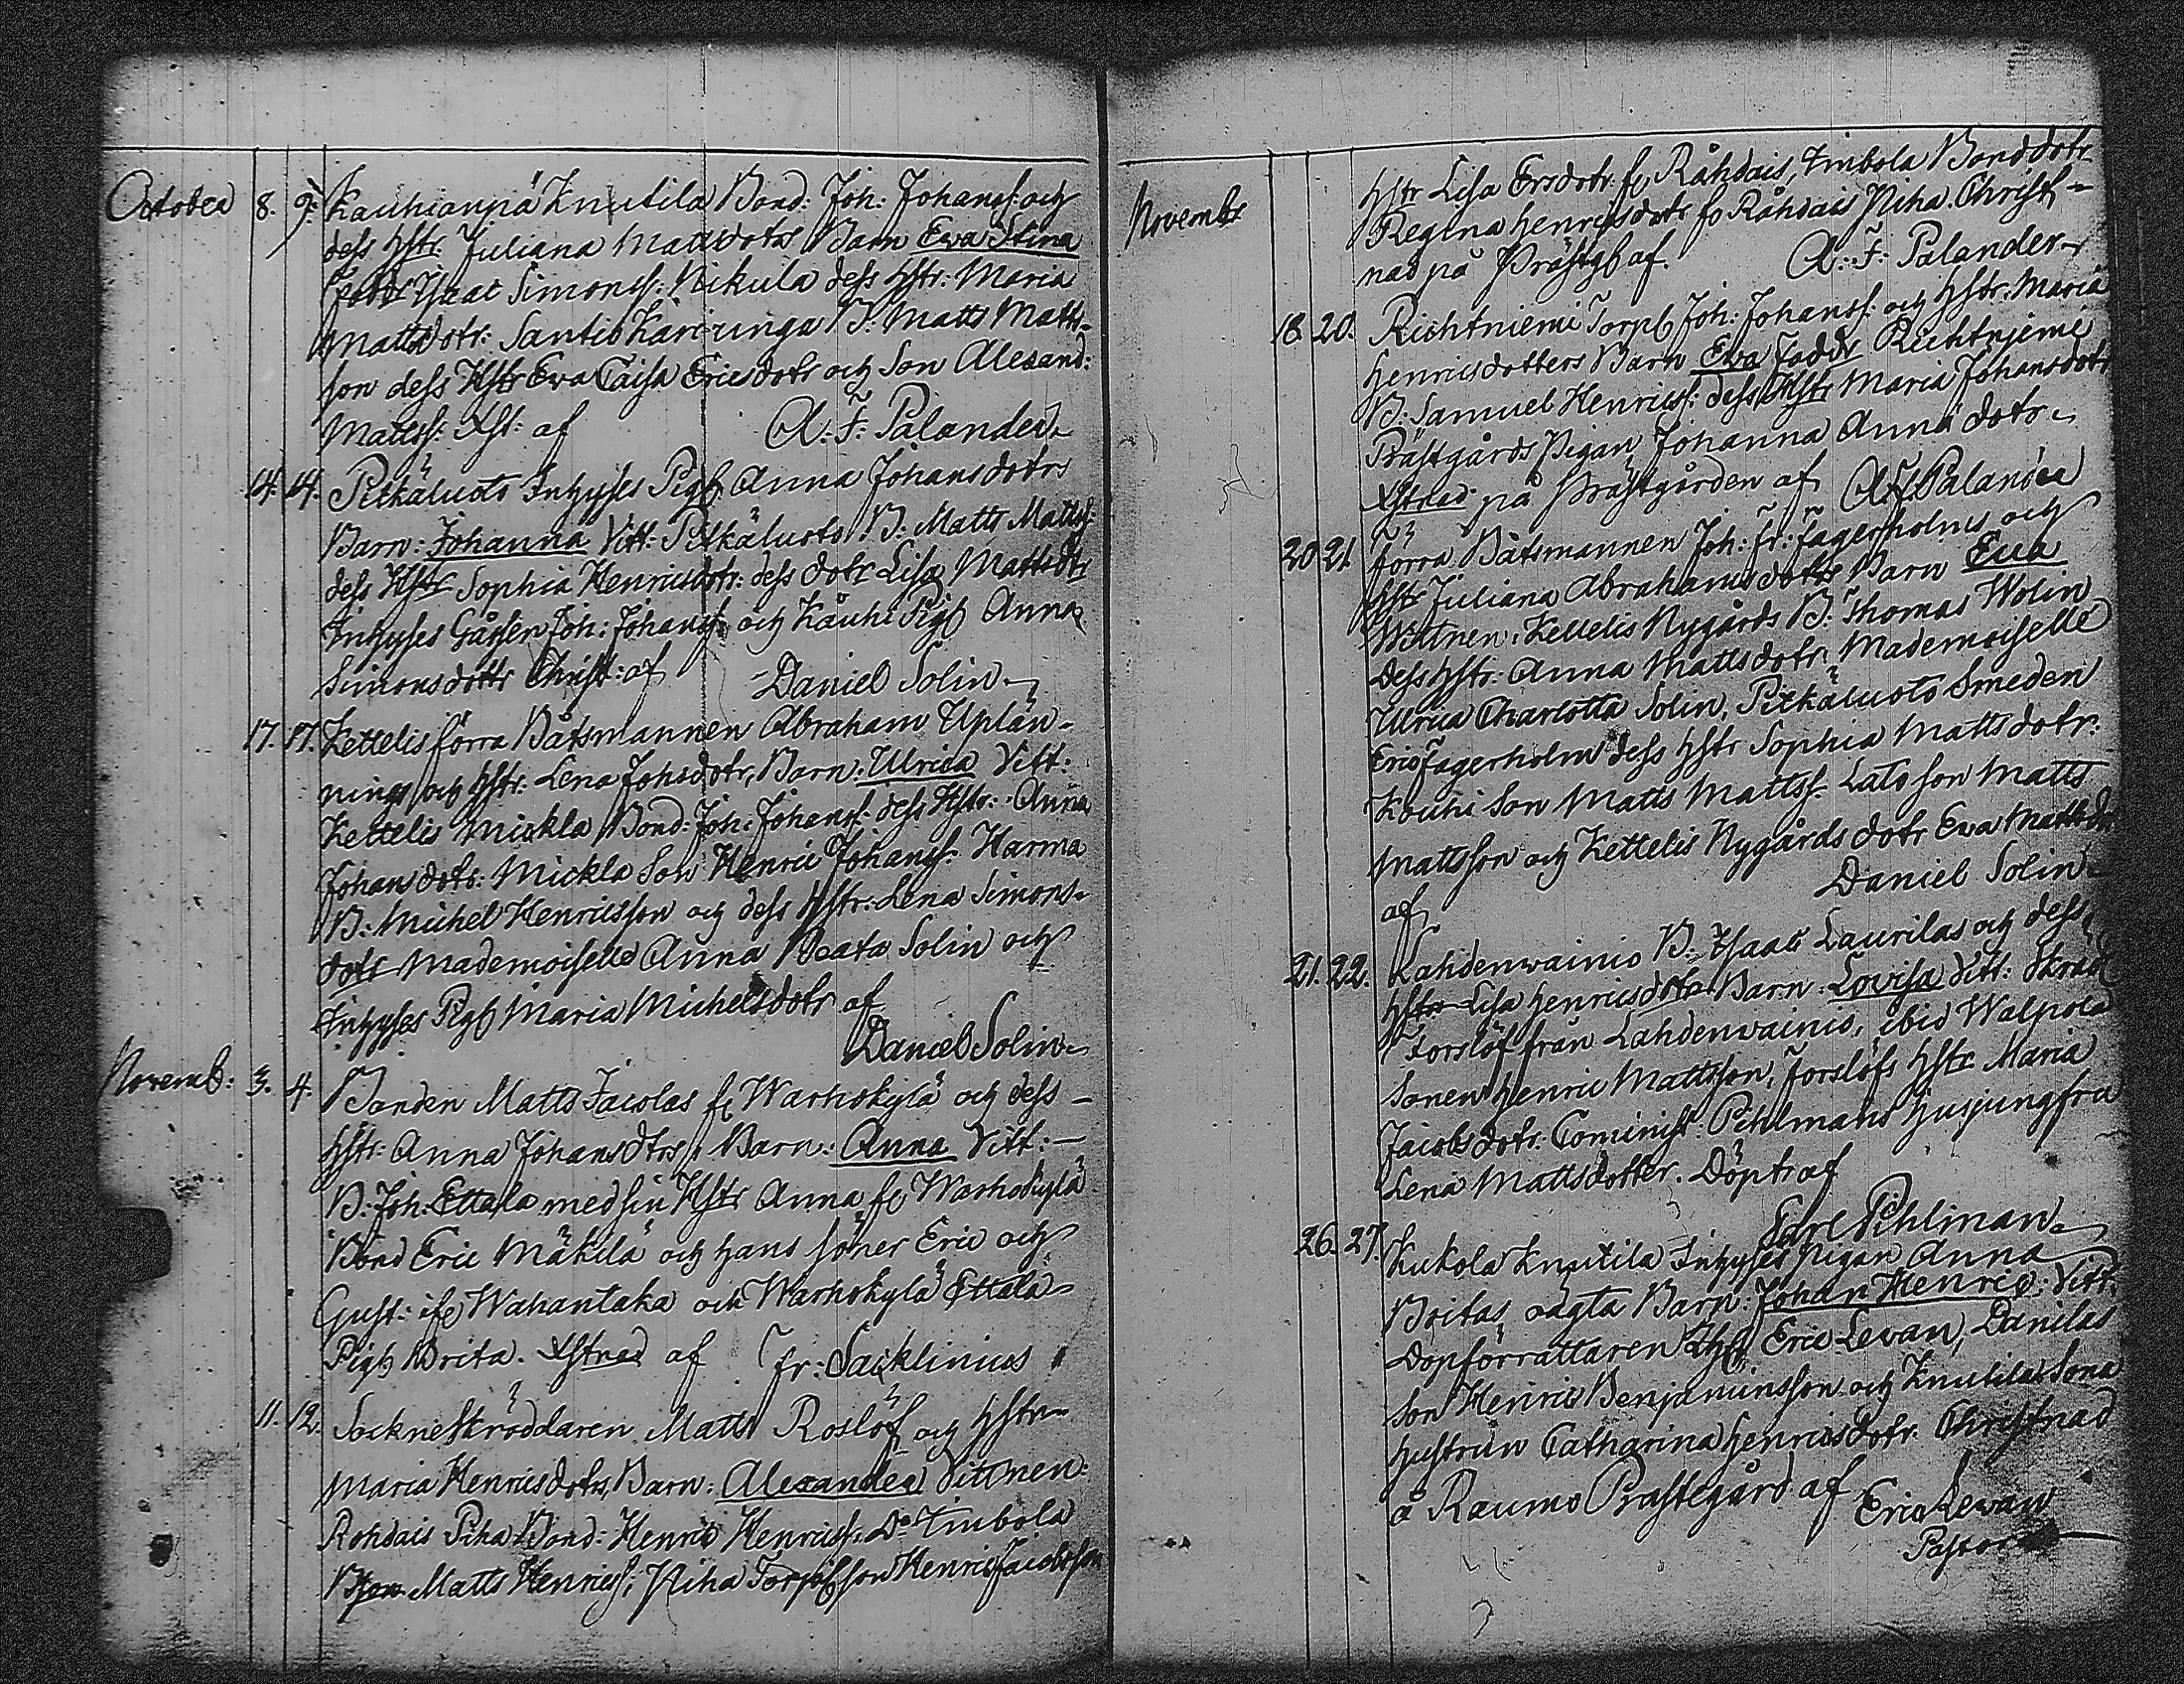 October 8. 9. Kauhianpä Knutila Bond: Joh: Johanss: och
dess hstr. Juliana Mattsdotrs Barn Ewa Stina
Simonss: Nikula dess hstr: Maria
Mattsdotr: Santio Kariringa B: Matts Matts-
son dess Hstr Eva Caisa Ericsdotr och Son Alexand:
Mattss: Xst: af A: F: Palander
14. 14. Pitkäluoto Inhyses Pig: Anna Johansdotrs
Barn: Johanna Vitt: Pitkäluoto B: Matts Mattss:
dess Hstr Sophia Henricsdotr: dess dotr Lisa Mattsdtr
Inhyses Gåssen Joh: Johanss: och Kauhi Pig: Anna
Simonsdottr Christ: af Daniel Solin
17. 17. Kettelis förra Båtsmannen Abraham Uplän-
nings och hstr: Lena Johsdotr, Barn: Ulrica Vitt:
Kettelis Mickla Bond: Joh: Johanss: dess Hstr: Anna
Johansdotr: Mickla Son Henric Johanss: Harma
B: Michel Henricsson och dess hstr: Lena Simons-
dotr Mademoiselle Anna Beata Solin och
Inhyses Pig: Maria Michelsdotr af
Daniel Solin
Novemb: 3. 4. Bonden Matts Jacolas fr Warhokylä och dess
hstr: Anna Johansdtrs Barn: Anna Vitt:
B: Joh: Ettala med sin Hstr Anna fr Warhokylä
Bond Eric Mäkilä och hans söner Eric och
Gust: Wahantaka och Warhokylä Ettala
Pig: Brita. Xstnad af Fr: Sacklinius
11. 12. Sockneskräddaren Matts Roslöf och hstr
Maria Henricsdotrs Barn: Alexander Vittnen:
Rohdais Piha Bond: Henric Henricss: Do Timbola
Bson Matts Henricss: Piha Torp: son Henric Jacobsson
Novembr hstr Lisa Ersdotr fr Råhdais, Timbola Bonddotr
Regina Henricsdotr fr Råhdais Piha. Christ-
nad på Prästg: af. A: F: Palander
18. 20. Richtniemi Torp: Joh: Johanss: och hstr: Maria
Henricsdotters Barn Ewa Faddr Richtniemi
B: Samuel Henricss: dess Hstr Maria Johansdotr
Prästgårds Pigan Johanna Anna dotr
Xstnad på Prästgården af A F Palander
20. 21. förra Båtsmannen Joh: Fr: Fagerholms och
hstr Juliana Abrahamsdotrs Barn Eva
Wittnen: Kettelis Nygårds B: Thomas Wolin
dess hstr: Anna Mattsdotr Mademoiselle
Ulrica Charlotta Solin, Pitkäluoto Smeden
Eric Fagerholm dess hstr Sophia Mattsdotr:
Kauhi Son Matts Mattss: Lato son Matts
Mattsson och Kettelis Nygårds dotr Ewa Mattsdr
af Daniel Solin
21. 22. Lahdenwainio B: Isaac Laurilas och dess
hstr Lisa Henricsdotrs Barn: Lovisa Vitt: Skräd
Forslöf från Lahdenwainio, ibid Walpola
Sonen Henric Mattsson, Forslöfs hstr Maria
Jacobsdotr: Cominist: Pihlmans husjungfru
Lena Mattsdotter. Döpt af
Carl Pihlman
26. 27. Kukola Knutila Inhyses pigan Anna
Britas oägta Barn: Johan Henric: Vitt:
Dopförrättaren Eric Levan, Danilas
son Henric Benjaminsson och Knutilas Sona
hustrun Catharina Henricsdotr. Christnad
å Raumo Prästegård af Eric Levan
Pastor